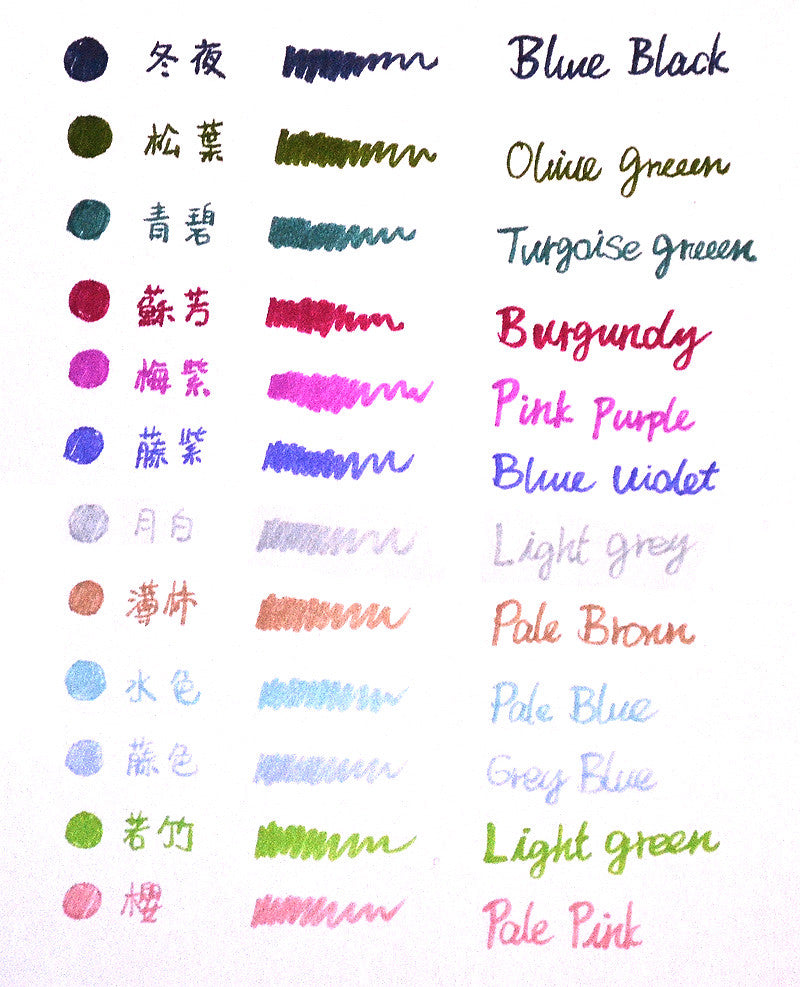 冬夜 Blue Black
松葉 Olive greeen
青碧 Turgoise greeen
蘇芳 Burgundy
梅紫 Pink Purple
藤紫 Blue Violet
月白 Light grey
薄柿 Pale Brown
水色 Pale Blue
藤色 Grey Blue
若竹 Light green
櫻 Pale Pink